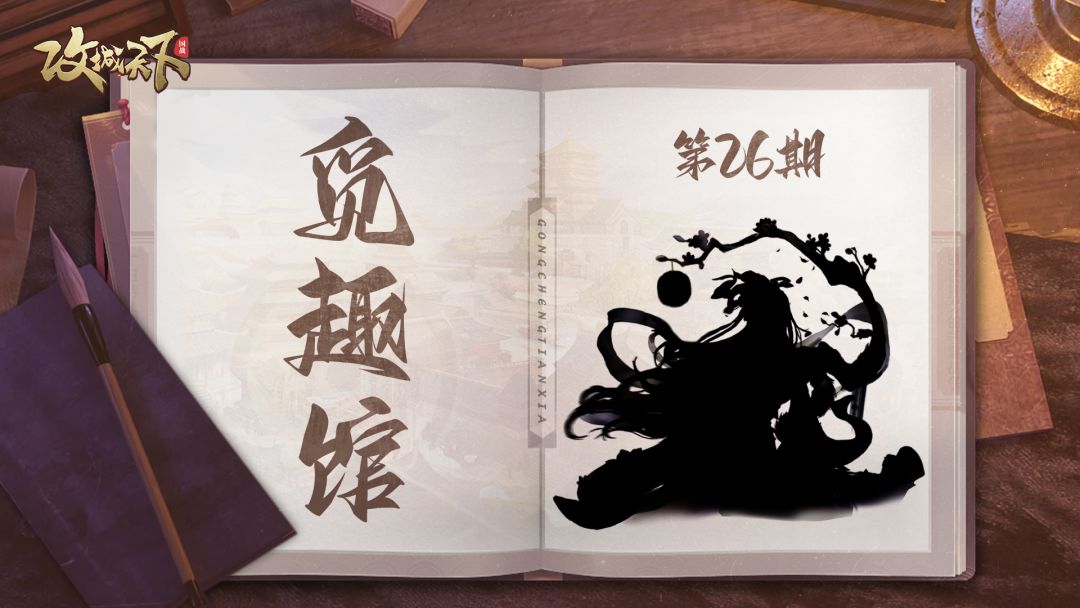 攻城天下
国战
觅趣馆
GONGCHENGTIANXIA
第26期